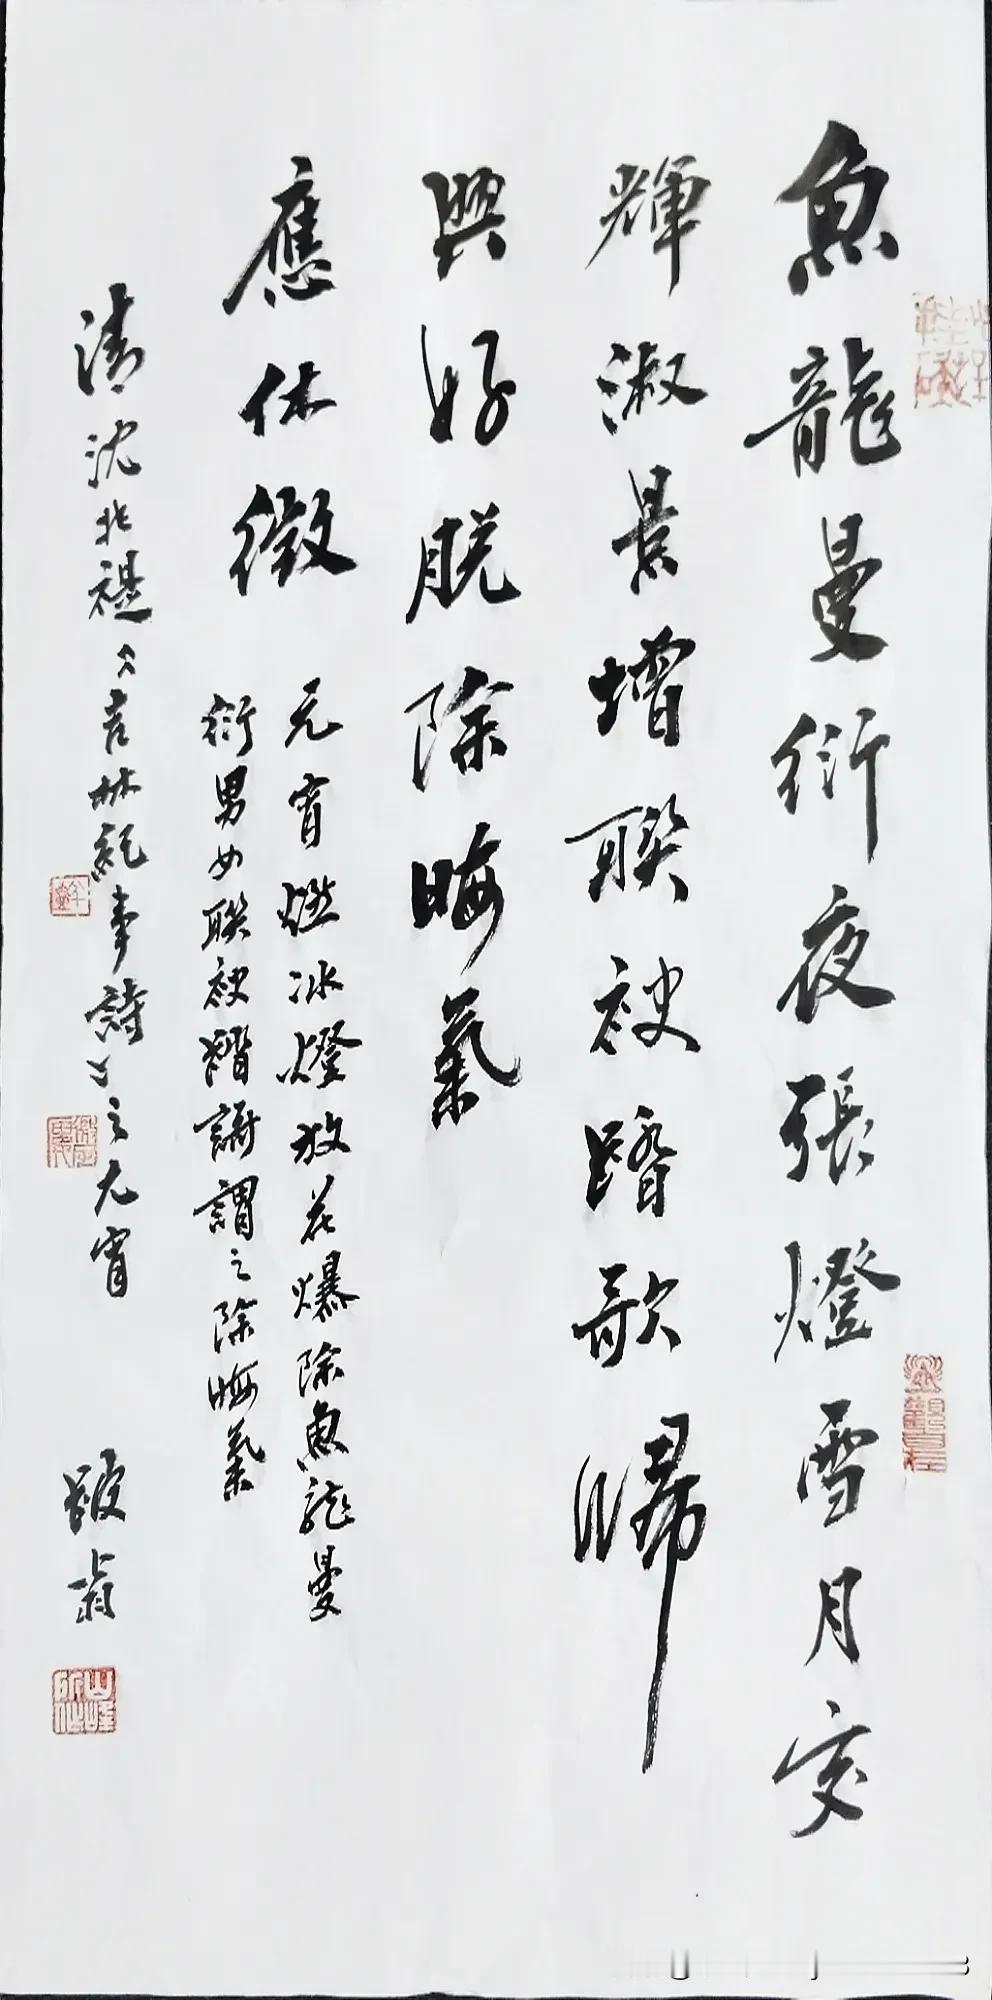 魚龍曼衍夜張燈雪月交
輝淑景增聯袂踏歌歸
興好脫除晦氣
應休徵
元宵燃冰燈放花爆除魚龍曼
衍男女聯袂踏謌謂之除晦氣
清沈兆禔《吉林紀事詩》之元宵
山峰所作